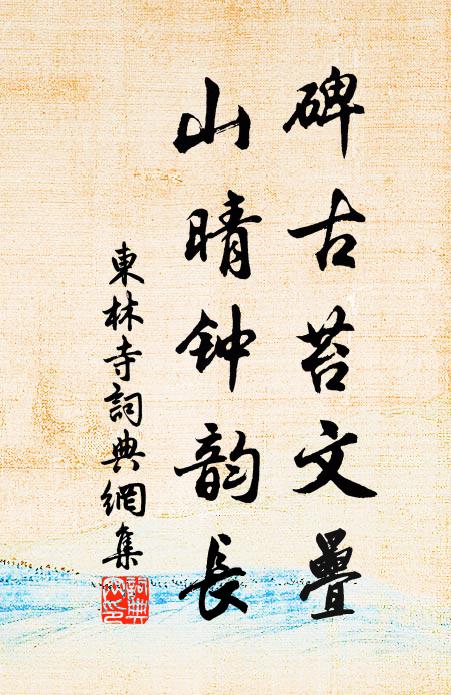 碑古苔文疊
山晴钟韵長
東林寺詞典網集